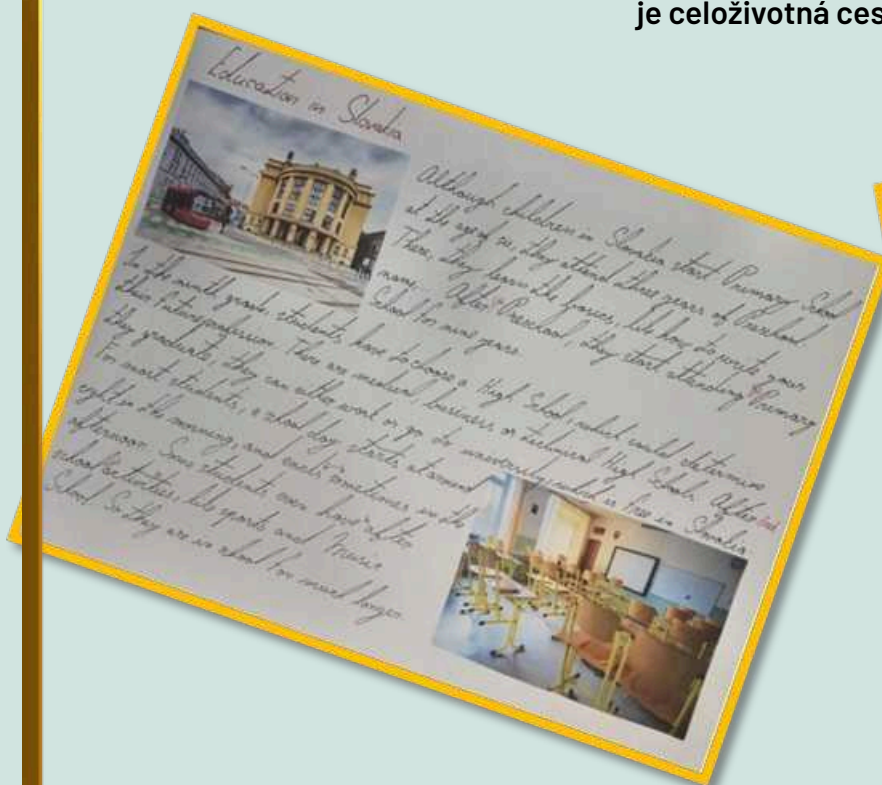 je celoživotná ces
Education in Slovakia
Although children in Slovakia start Primary School
at the age of six, they attend three years of Preschool
There, they learn the basics, like how to write your
name. After Preschool, they start attending Primary
School for nine years.
In the ninth grade, students have to choose a High School, which could determine
their future profession. There are medical, business or technical High Schools. After
they graduate, they can either work or go to university, which is free in Slovakia.
For most students, a school day starts at around
eight in the morning, and ends sometimes in the
afternoon. Some students even have after
school activities like sports and Music
School. So they are in school for much longer.